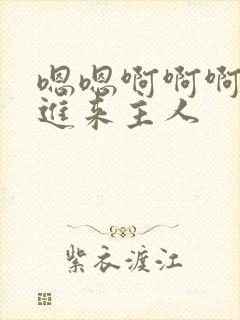 嗯嗯啊啊啊
进来主人
紫衣渡江